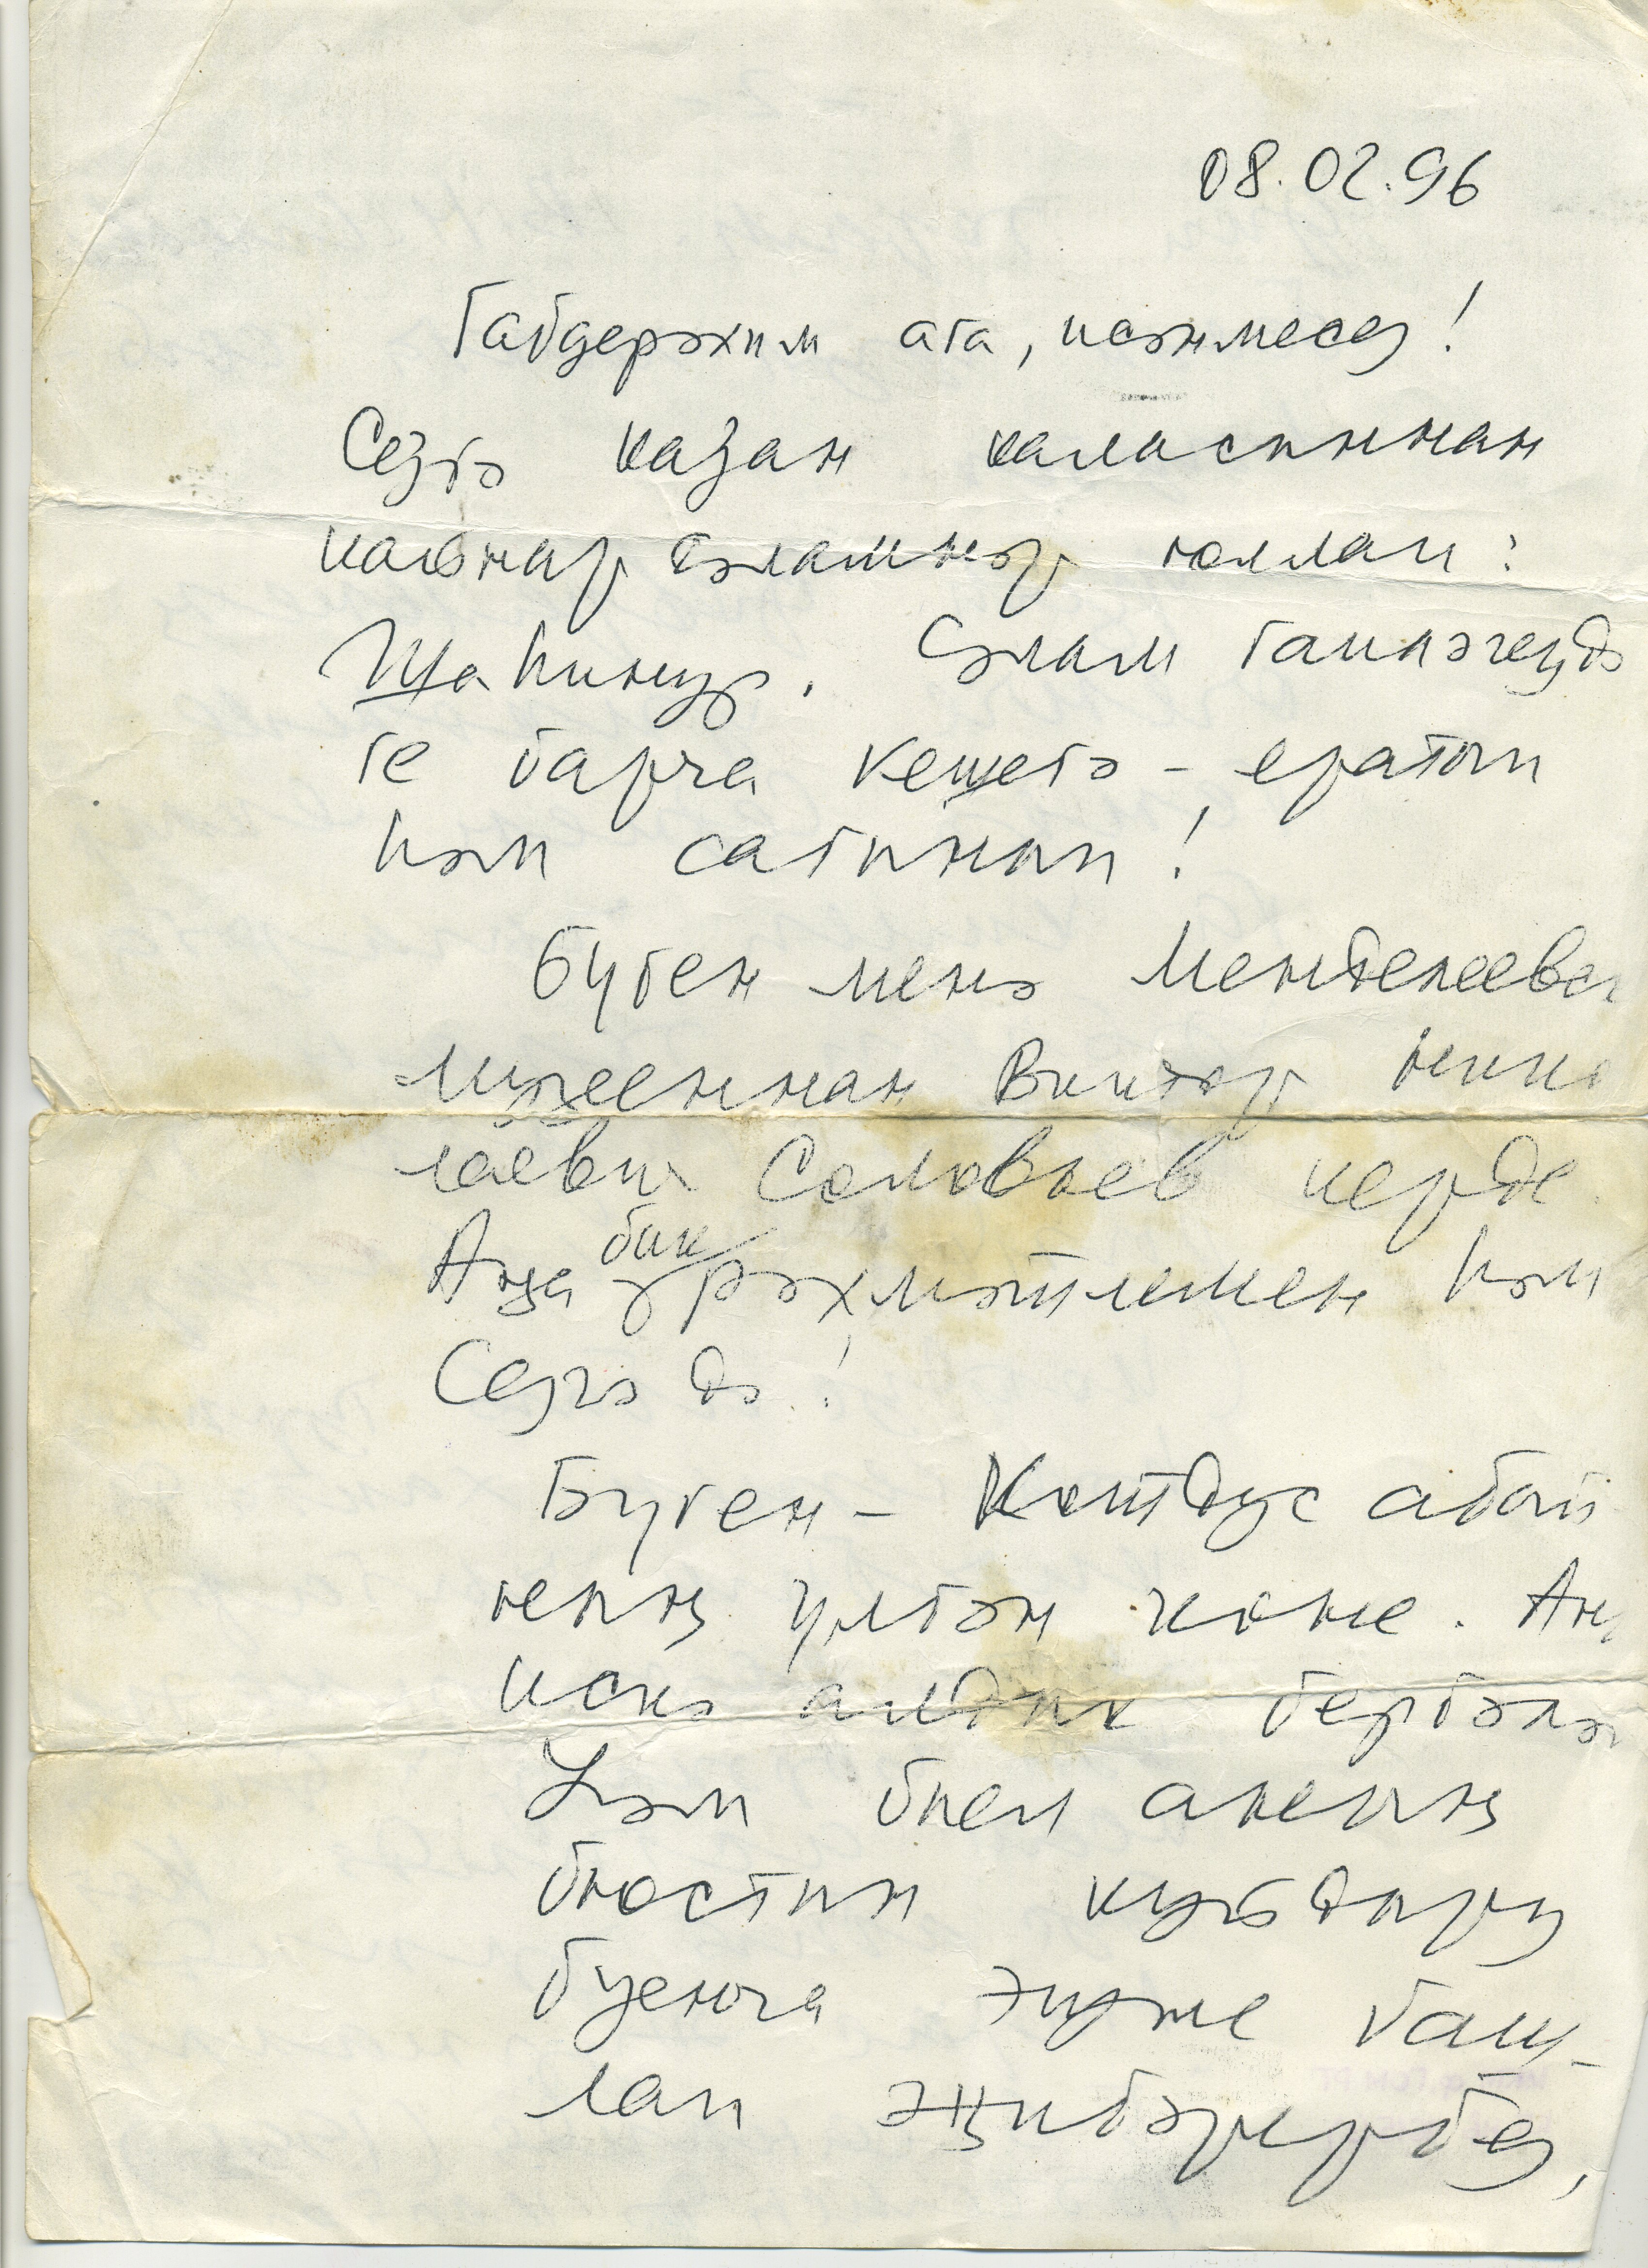 08.02.96
Габдерәхим ата, исәнмесез!
Сезгә Казан каласыннан
кайнар сәламнәр юллап:
Шаһинур. Сәлам гаиләгездә
ге барча кешегә - яратып
һәм сагынып!
Бүген менә Менделеевск
музееннан Виктор Нико
лаевич Соловьев керде.
Аңа бик рәхмәтлемен һәм
Сезгә дә!
Бүген - Котдус абый
ның үлгән көне. Аны
искә алдык бергәләп
Һәм быел аның
бюстын куйдыру
буенча эшне баш-
лап җибәрербез,